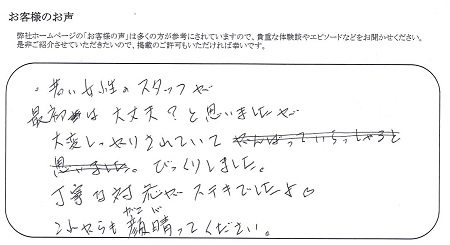 お客様のお声
弊社ホームページの「お客様の声」は多くの方が参考にされていますので、貴重な体験談やエピソードなどをお聞かせください。
是非ご紹介させていただきたいので、掲載のご許可もいただければ幸いです。
・若い女性のスタッフが
最初は大丈夫?と思いましたが
大変しっかりされていてがんばっていらっしゃると
思いました。びっくりしました。
丁寧な対応がステキでしたよ♡
これからも顔晴ってください。
がんば